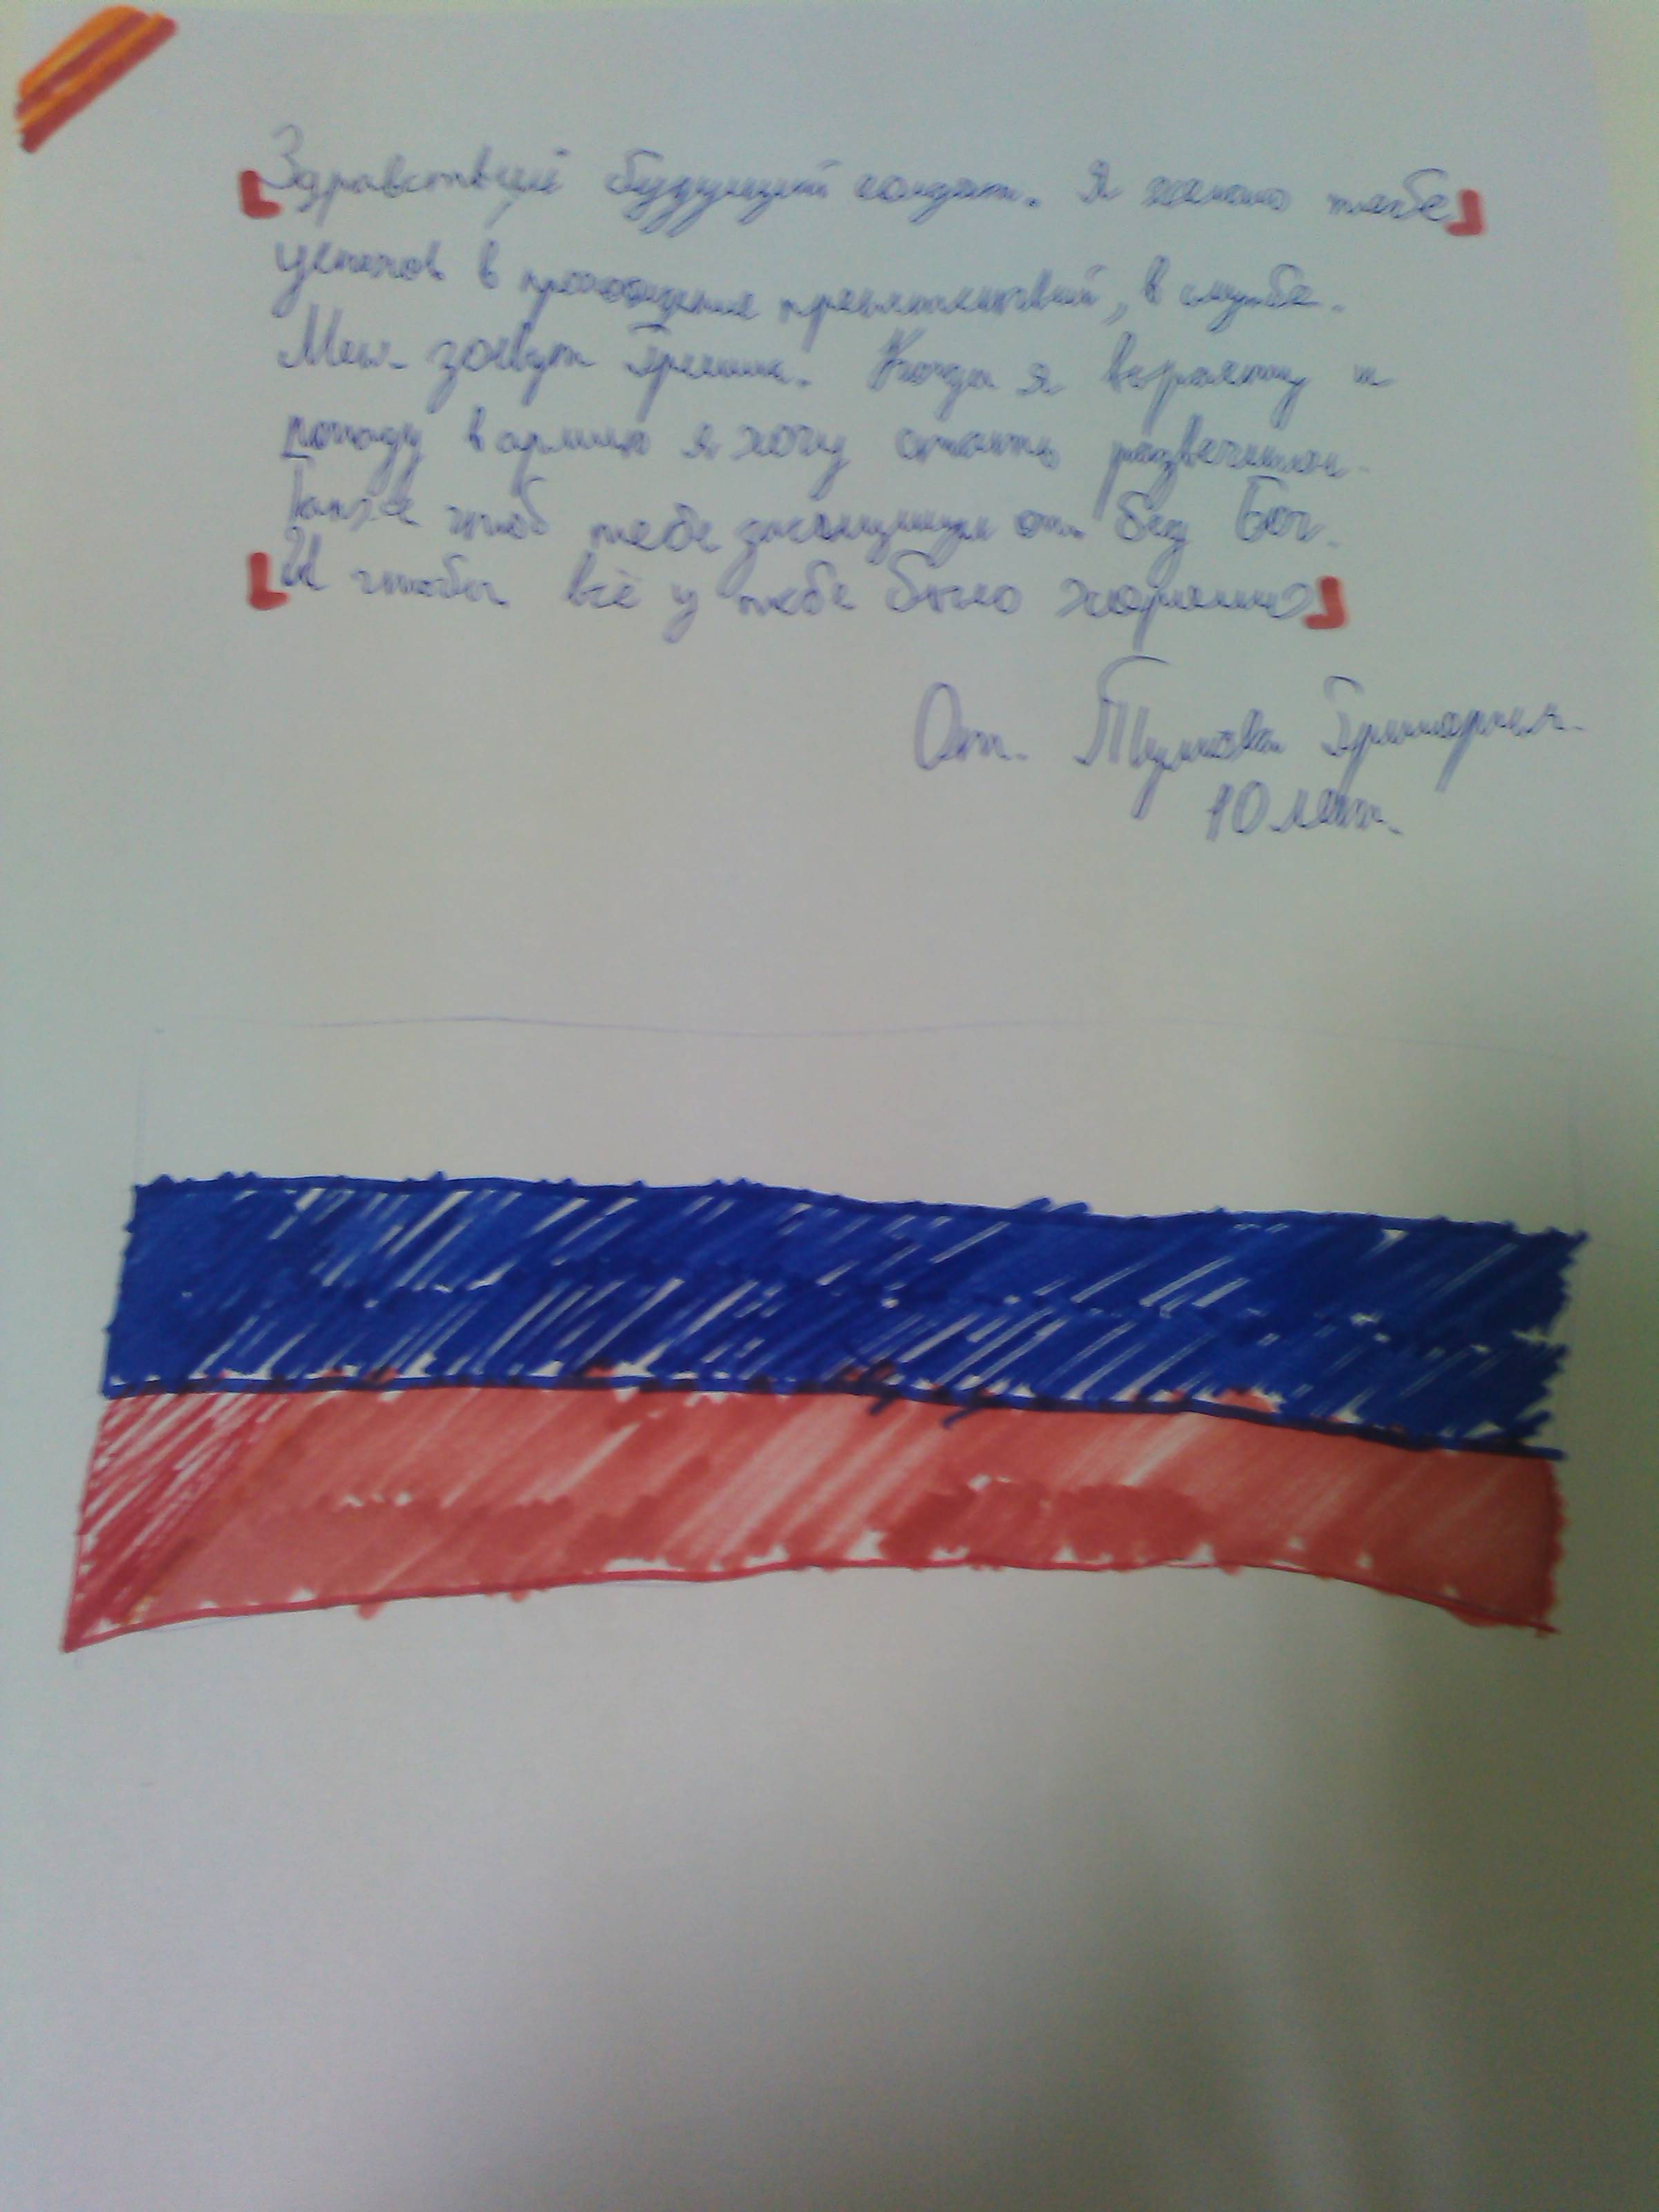 Здравствуй будущий солдат. Я желаю тебе
успехов в прохождение препятствий, в службе.
Меня зовут Гриша. Когда я вырасту и
попаду в армию я хочу стать разведчиком.
Также чтоб тебя защищал от бед Бог.
И чтобы всё у тебя было хорошо
От Григория
10 лет.